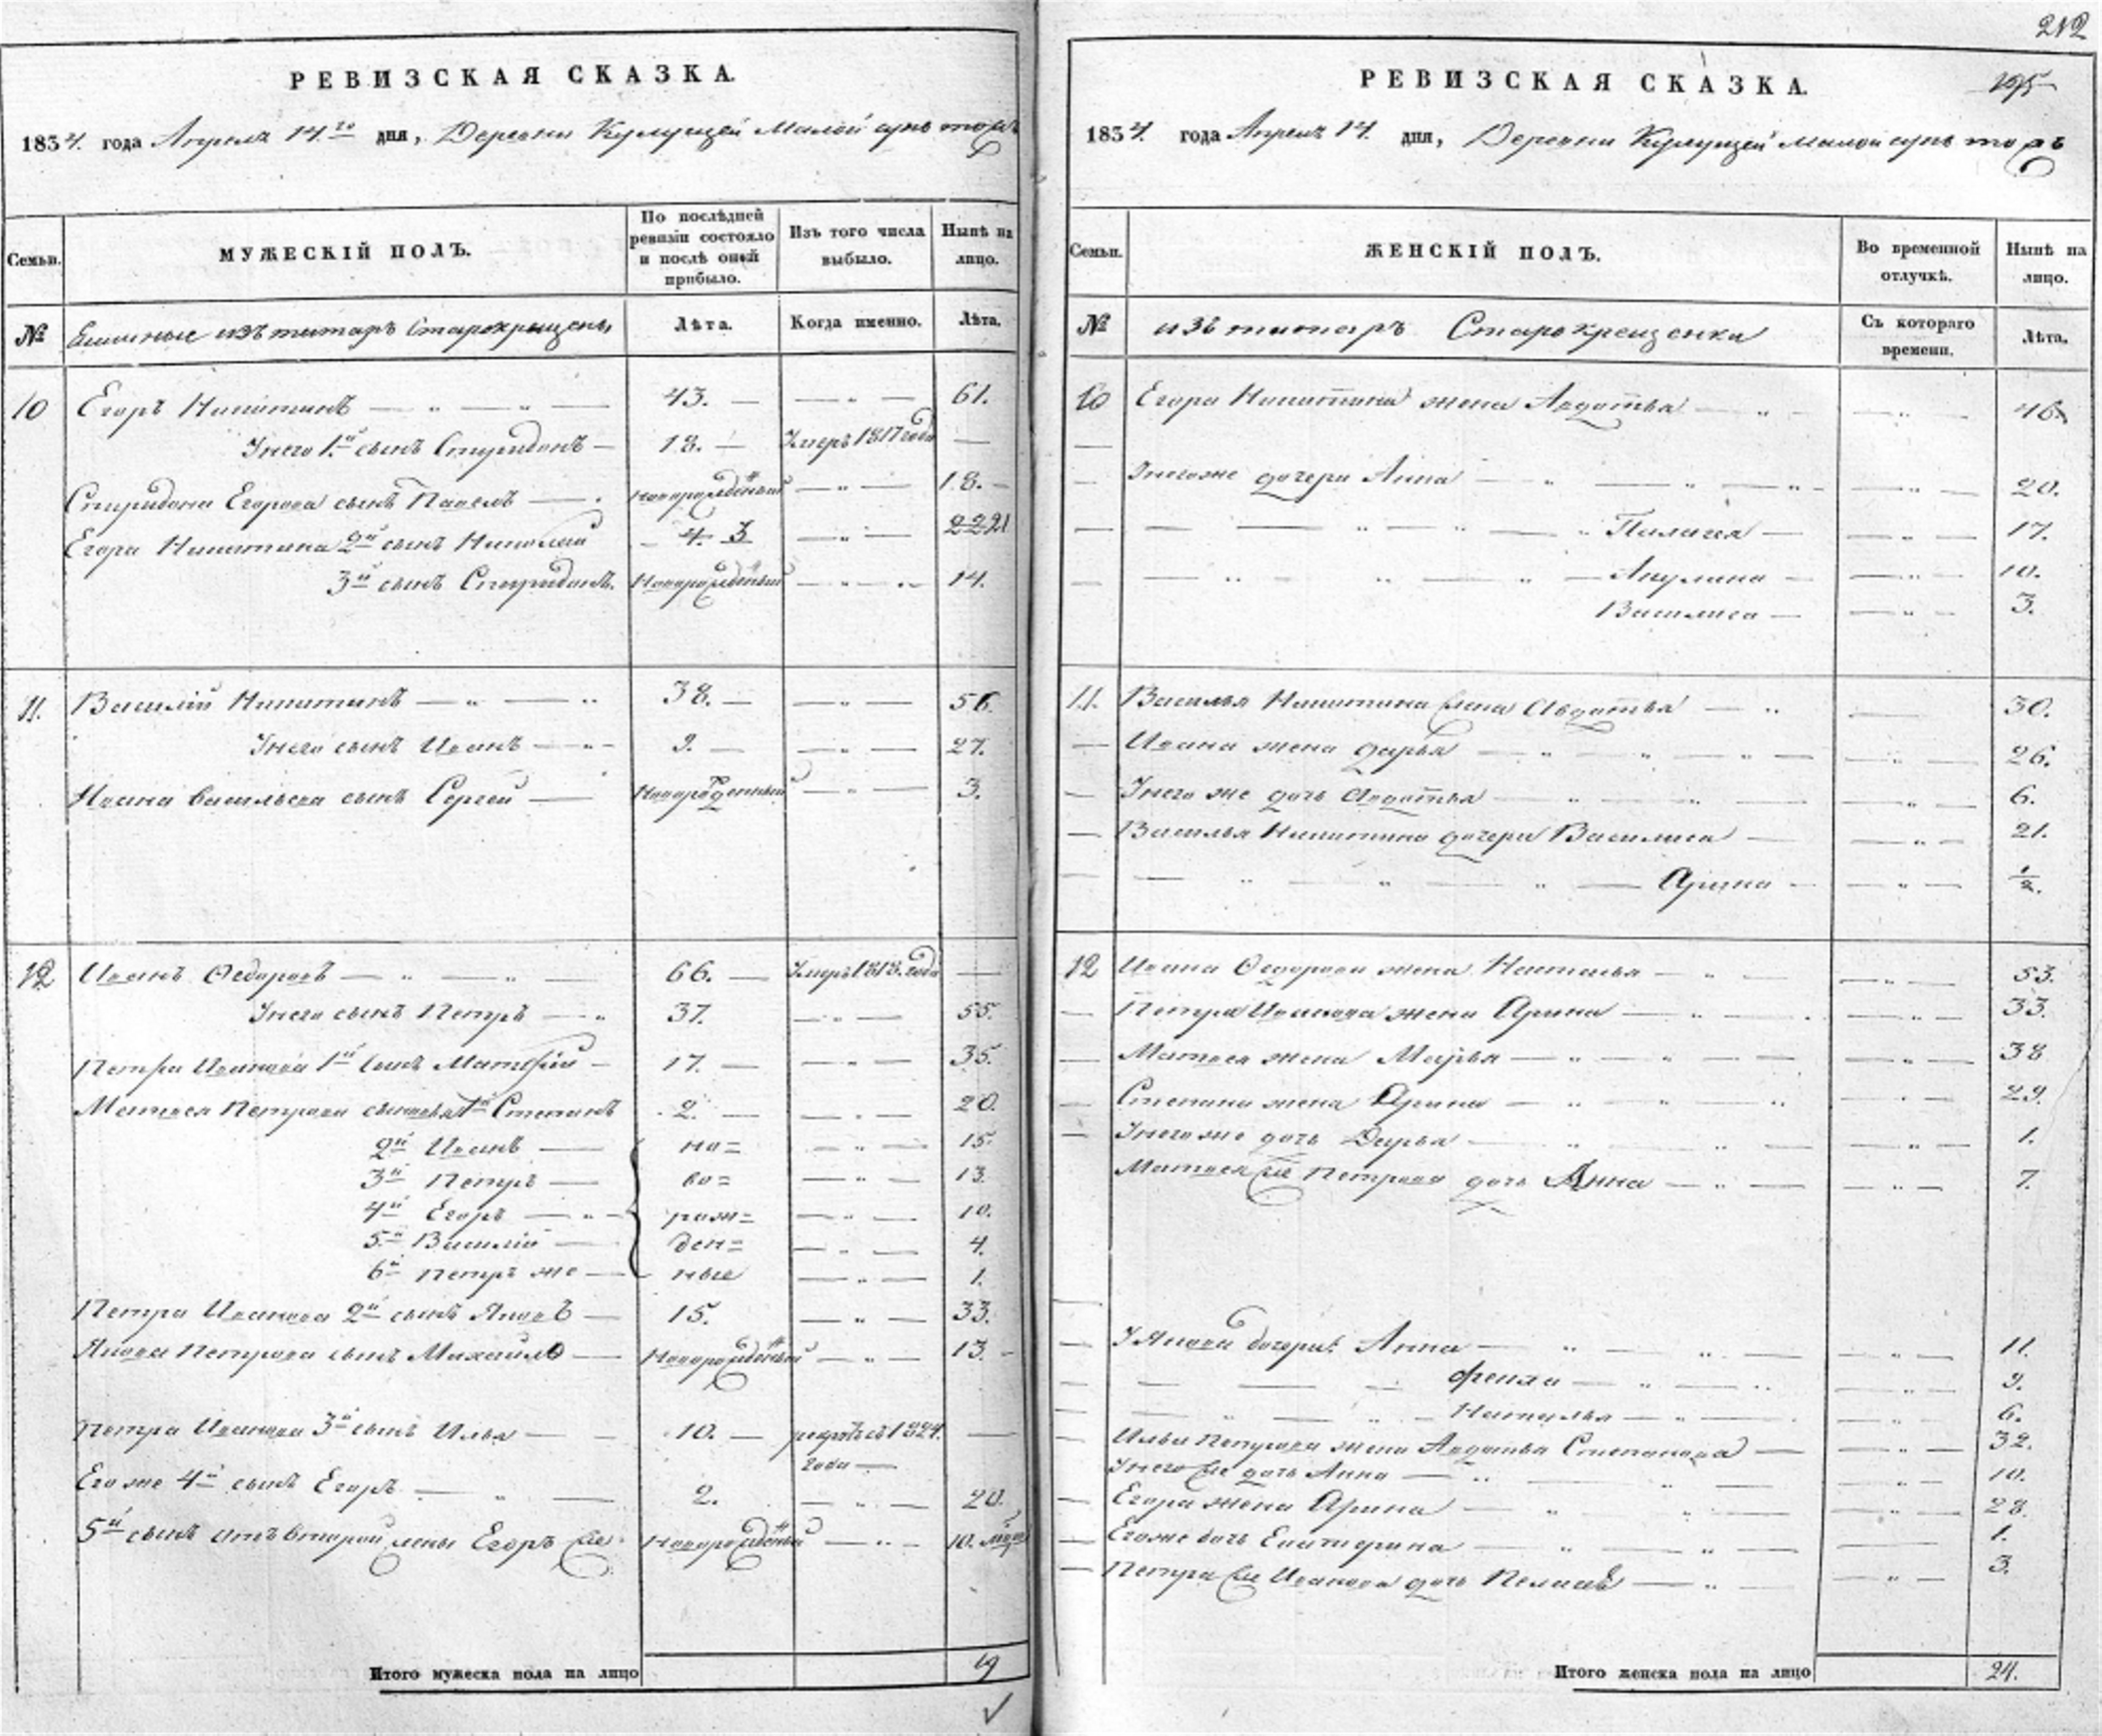 212
РЕВИЗСКАЯ СКАЗКА.
1834. года Апреля 14.го дня, Деревни Кулущей Малой сунь тожъ
Семьи.
МУЖЕСКІЙ ПОЛЪ.
По послѣдней ревизіи состояло и послѣ оной прибыло.
Изъ того числа выбыло.
Нынѣ на лицо.
№ изъ татаръ Старокрещены Лѣта. Когда именно. Лѣта.
10 Егоръ Никитинъ — „ — „ — 43. — — „ — 61.
У него 1й сынъ Спиридонъ — 18. — Умеръ 1817 года —
Спиридона Егорова сынъ Павелъ — новорожденный — „ — 18. –
Егора Никитина 2й сынъ Николай – 4. 3 — „ — 22 21
3й сынъ Спиридонъ. Новорожденный — „ — 14.
11. Василій Никитинъ — „ — „ 38. — — „ — 56.
У него сынъ Иванъ — „ – 9. — — „ — 27.
Ивана Васильева сынъ Сергей — Новорожденный — „ — 3.
12 Иванъ Ѳедоровъ — „ — „ — 66. — Умеръ 1818. года —
У него сынъ Петръ — „ 37. — „ — 55.
Петра Иванова 1й сынъ Матвѣй — 17. — — „ — 35.
Матвея Петрова сыновья 1й Степанъ 2. — — „ — 20.
2й Иванъ — но= — „ — 15.
3й Петръ — во= — „ — 13.
4й Егоръ — „ – рож= — „ — 10.
5й Василій — ден= — „ — 4.
6й Петръ же — ные — „ — 1.
Петра Иванова 2й сынъ Яковъ — 15. — „ — 33.
Якова Петрова сынъ Михайло — Новорожденный — „ — 13. –
Петра Иванова 3й сынъ Илья — — 10. — 1824. года — —
Его же 4й сынъ Егоръ — „ — 2. — „ — 20.
5й сынъ отъ второй жены Егоръ же Новорожденный — „ – 10.
Итого мужеска пола на лицо 19
РЕВИЗСКАЯ СКАЗКА. 195
1834. года Апреля 14. дня, Деревни Кулущей Малой сунь тожъ
Семьи.
ЖЕНСКІЙ ПОЛЪ.
Во временной отлучкѣ.
Нынѣ на лицо.
№ изъ татаръ Старокрещенки Съ котораго времени. Лѣта.
10 Егора Никитина жена Авдотья — „ — „ — 46.
— У него же дочери Анна — „ — „ — „ – — „ — 20.
— — — „ — „ — „ Пилагея — — „ — 17.
— — „ — „ — „ — Акулина — — „ — 10.
Василиса — — „ — 3.
11. Василья Никитина жена Авдотья — „ — 30.
— Ивана жена Дарья — „ — „ — „ — — „ — 26.
— У него же дочь Авдотья — „ — „ — — „ — 6.
— Василья Никитина дочери Василиса — — „ — 21.
— — „ — „ — „ — Арина — — „ — 1/2.
12 Ивана Ѳедорова жена Наталья — „ — — „ — 53.
— Петра Иванова жена Арина — „ — . — „ — 33.
— Матвея жена Марья — „ — „ — — „ — 38
— Степана жена Арина — „ — „ — „ — „ — 29.
— У него же дочь Дарья — „ — „ — — „ — 1.
Матвея же Петрова дочь Анна — „ — — „ — 7.
— У Якова дочери: Анна — „ — „ — — „ — 11.
— — — — Фекла — „ — „ — „ — 9.
— — „ — „ – Наталья — „ — . — „ — 6.
Ильи Петрова жена Авдотья Степанова — — „ — 32.
У него же дочь Анна — „ — „ — — „ — 10.
— Егора жена Арина — „ — „ — — „ — 28.
— Его же дочь Екатерина — „ — „ — — 1.
— Петра же Иванова дочь — „ — — „ — 3.
Итого женска пола на лицо 24.